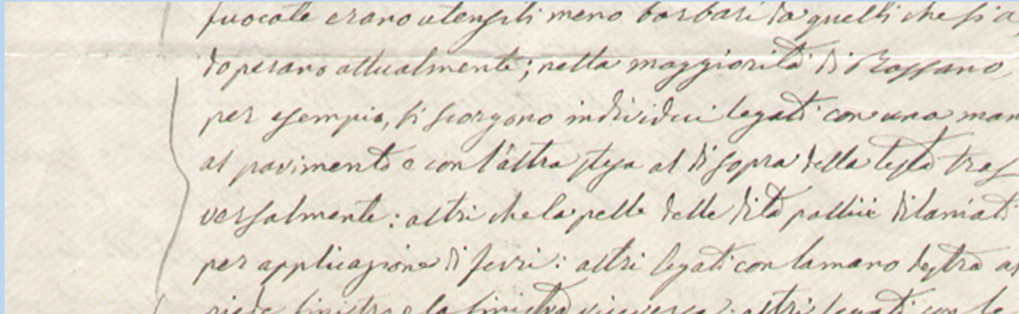 fuocate erano utensili meno barbari da quelli che si a
doperano attualmente; nella maggiorità di Rossano,
per esempio, si scorgono individui legati con una man
al pavimento e con l'altra stesa al di sopra della testa tras
versalmente: altri che la pelle delle dita pollici dilaniati
per applicazione di ferri: altri legati con la mano destra al
piede sinistro e la sinistra viceversa: altri legati con le